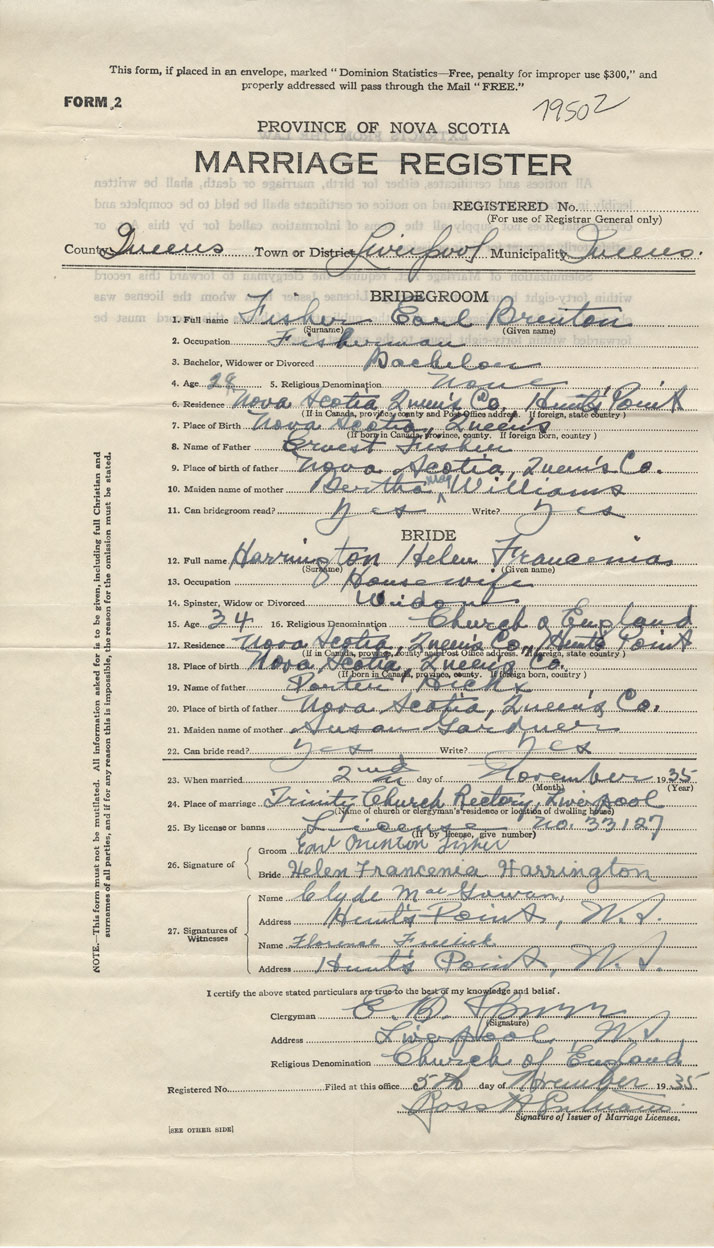 This form, if placed in an envelope, marked "Dominion Statistics—Free, penalty for improper use $300," and
properly addressed will pass through the Mail "FREE."
FORM 2
19502
PROVINCE OF NOVA SCOTIA
MARRIAGE REGISTER
REGISTERED No.
(For use of Registrar General only)
County Queens Town or District Liverpool Municipality Queens.
BRIDEGROOM
1. Full name Fisher Earl Brenton
(Surname) (Given name)
2. Occupation Fisherman
3. Bachelor, Widower or Divorced Bachelor
4. Age 28 5. Religious Denomination None
6. Residence Nova Scotia, Queen's Co, Hunt's Point
(If in Canada, province, county and Post Office address. If foreign, state country)
7. Place of Birth Nova Scotia, Queens
(If born in Canada, province, county. If foreign born, country)
8. Name of Father Ernest Fisher
9. Place of birth of father Nova Scotia, Queen's Co.
10. Maiden name of mother Bertha May Williams
11. Can bridegroom read? Yes Write? Yes
BRIDE
12. Full name Harrington Helen Francenias
(Surname) (Given name)
13. Occupation Housewife
14. Spinster, Widow or Divorced Widow
15. Age 34 16. Religious Denomination Church o England
17. Residence Nova Scotia, Queen's Co, Hunts Point
(If in Canada, province, county and Post Office address. If foreign, state country)
18. Place of birth Nova Scotia, Queen's Co.
(If born in Canada, province, county. If foreign born, country)
19. Name of father Porter Hicks
20. Place of birth of father Nova Scotia, Queen's Co.
21. Maiden name of mother Susan Gardner
22. Can bride read? Yes Write? Yes
23. When married 2nd day of November 1935
(Month) (Year)
24. Place of marriage Trinity Church Rectory, Liverpool
(Name of church or clergyman's residence or location of dwelling house)
25. By license or banns License No. 33127
(If by license, give number)
26. Signature of
Groom Earl Fisher
Bride Helen Francenia Harrington
27. Signatures of Witnesses
Name Clyde MacGowan,
Address Hunt's Point, N.S.
Name Florence
Address Hunt's Point, N.S.
I certify the above stated particulars are true to the best of my knowledge and belief.
Clergyman E. B.
(Signature)
Address Liverpool, N.S.
Religious Denomination Church of England
Registered No. Filed at this office 5th day of November 1935
Ross
Signature of Issuer of Marriage Licenses.
[SEE OTHER SIDE]
NOTE.—This form must not be mutilated. All information asked for is to be given, including full Christian and
surnames of all parties, and if for any reason this is impossible, the reason for the omission must be stated.